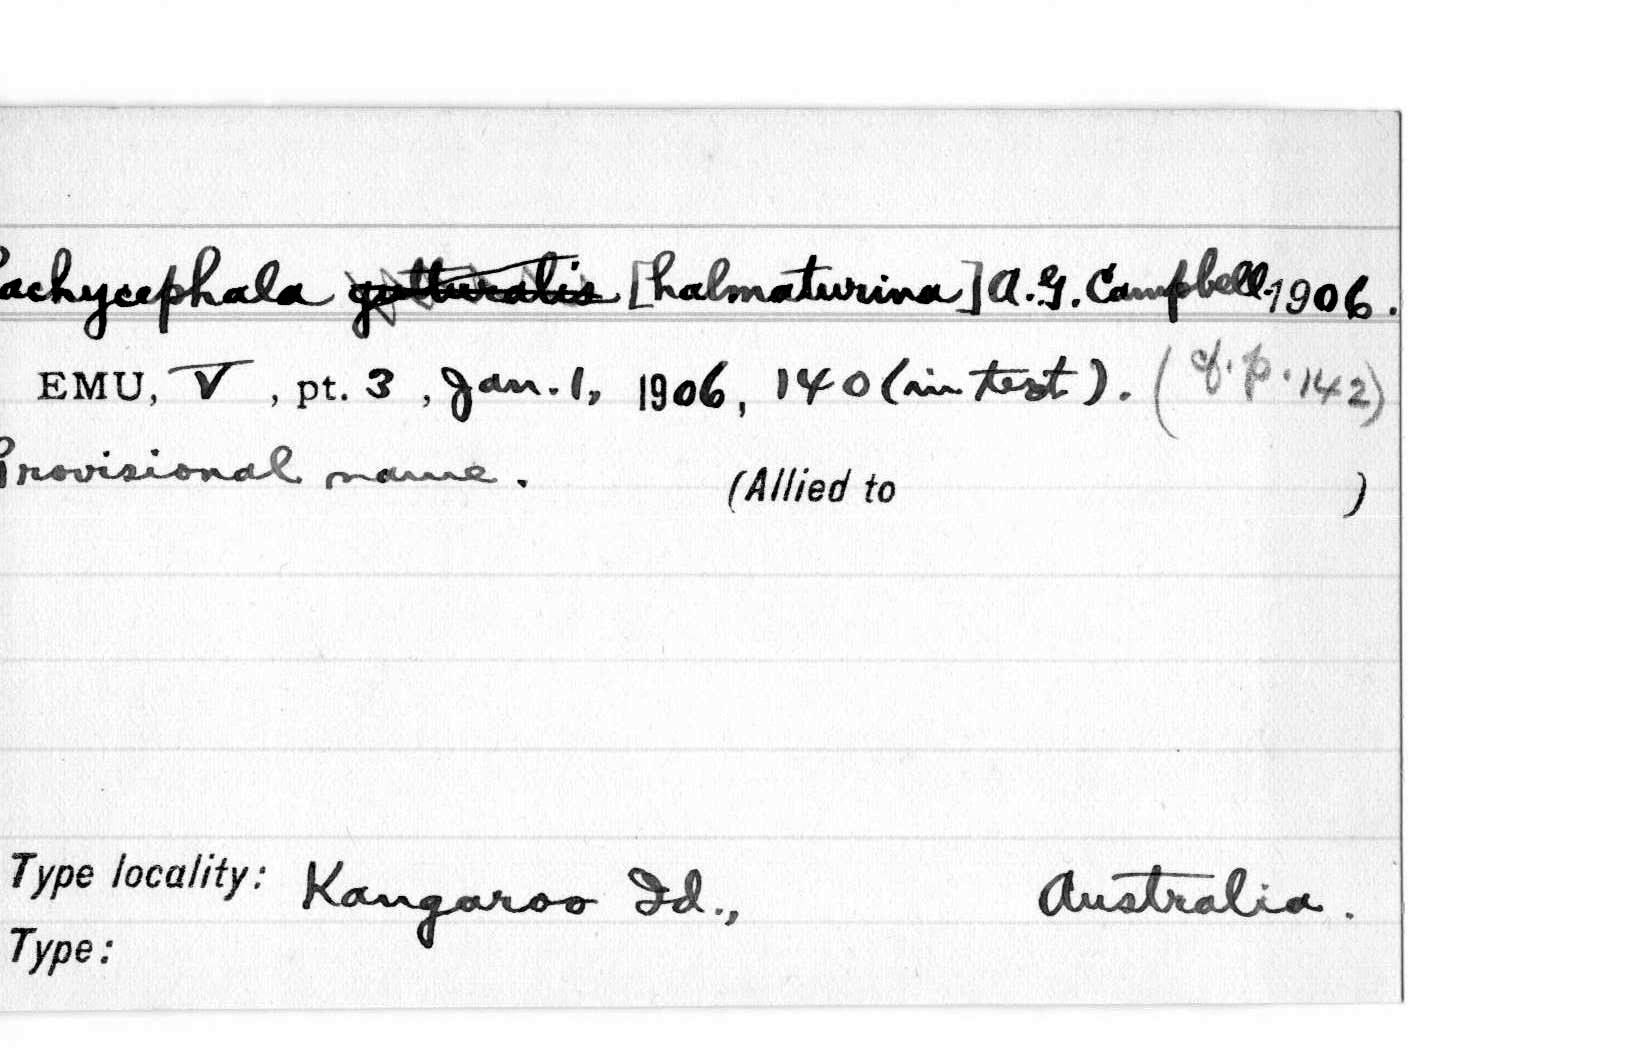 Pachycephala gutturalis [halmaturina] A.G. Campbell 1906.
EMU, V, pt. 3, Jan. 1, 1906, 140 (in text). (cf. p. 142)
Provisional name. (Allied to )
Type locality: Kangaroo Id., Australia.
Type: